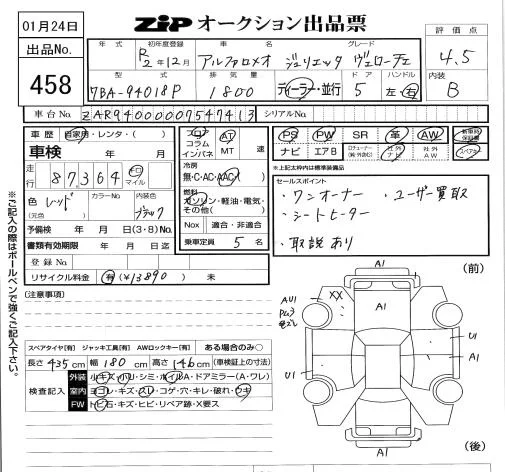 01月24日
出品No.
458
ZIP オークション出品票
評価点
4.5
内装
B
年式 初年度登録 車名 グレード
R2年12月 アルファロメオ ジュリエッタ ヴェローチェ
型式 排気量 ドア ハンドル
7BA-94018P 1800 ディーラー・並行 5 左・右
車台No. ZAR94000007547413 シリアルNo.
車歴 自家用・レンタ・( )
車検 年 月
走行 87,364 キロ マイル
色 レッド (元色) カラーNo. 内装色 ブラック
予備検 年 月 日(3・8)No.
書類有効期限 年 月 日迄
登録No.
リサイクル料金 有(¥13890) 未
フロア コラム インパネ AT MT 速
冷房 無・C・AC・AAC
燃料 ガソリン・軽油・電気・その他( )
Nox 適合・非適合
乗車定員 5 名
PS PW SR 革 AW 新車時保証書
ナビ エアB 社外ナビ 社外AW
※上記太枠内は標準装備品
セールスポイント
・ワンオーナー ・ユーザー買取
・シートヒーター
・取説あり
(注意事項)
スペアタイヤ[有] ジャッキ工具[有] AWロックキー[有] ある場合のみ○
長さ435cm 幅180cm 高さ146cm (車検証上の寸法)
検査記入
外装 小キズ・小凹・シミ・ホイルA・ドアミラー(A・ワレ)
室内 ヨゴレ・キズ・スレ・コゲ・穴・キレ・破れ・ウキ
FW トビ石・キズ・ヒビ・リペア跡・X要ス
※ご記入の際はボールペンで強くご記入下さい。
(前)
A1
AU1
XX
A1
U1
A1
U1
A1
(後)